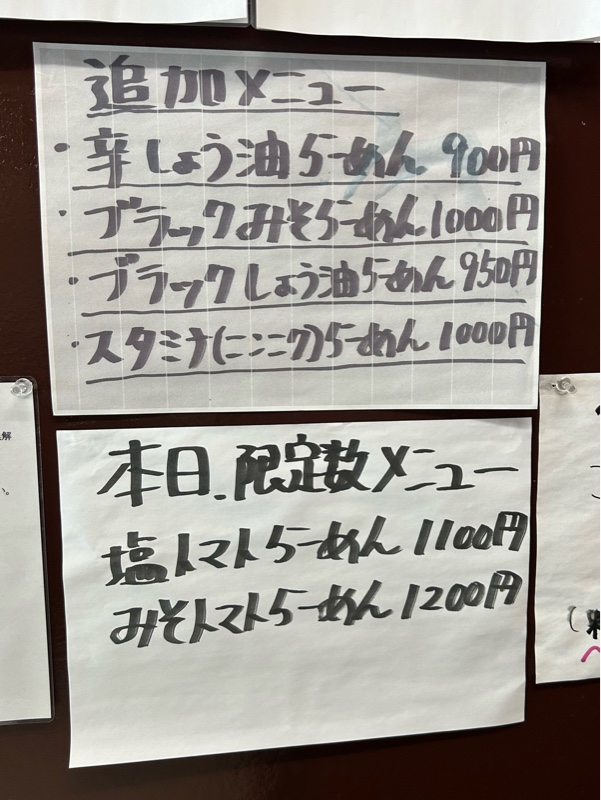 追加メニュー
・辛しょう油らーめん 900円
・ブラックみそらーめん 1000円
・ブラックしょう油らーめん 950円
・スタミナ(ニンニク)らーめん 1000円
本日、限定数メニュー
塩トマトらーめん 1100円
みそトマトらーめん 1200円
解
い。